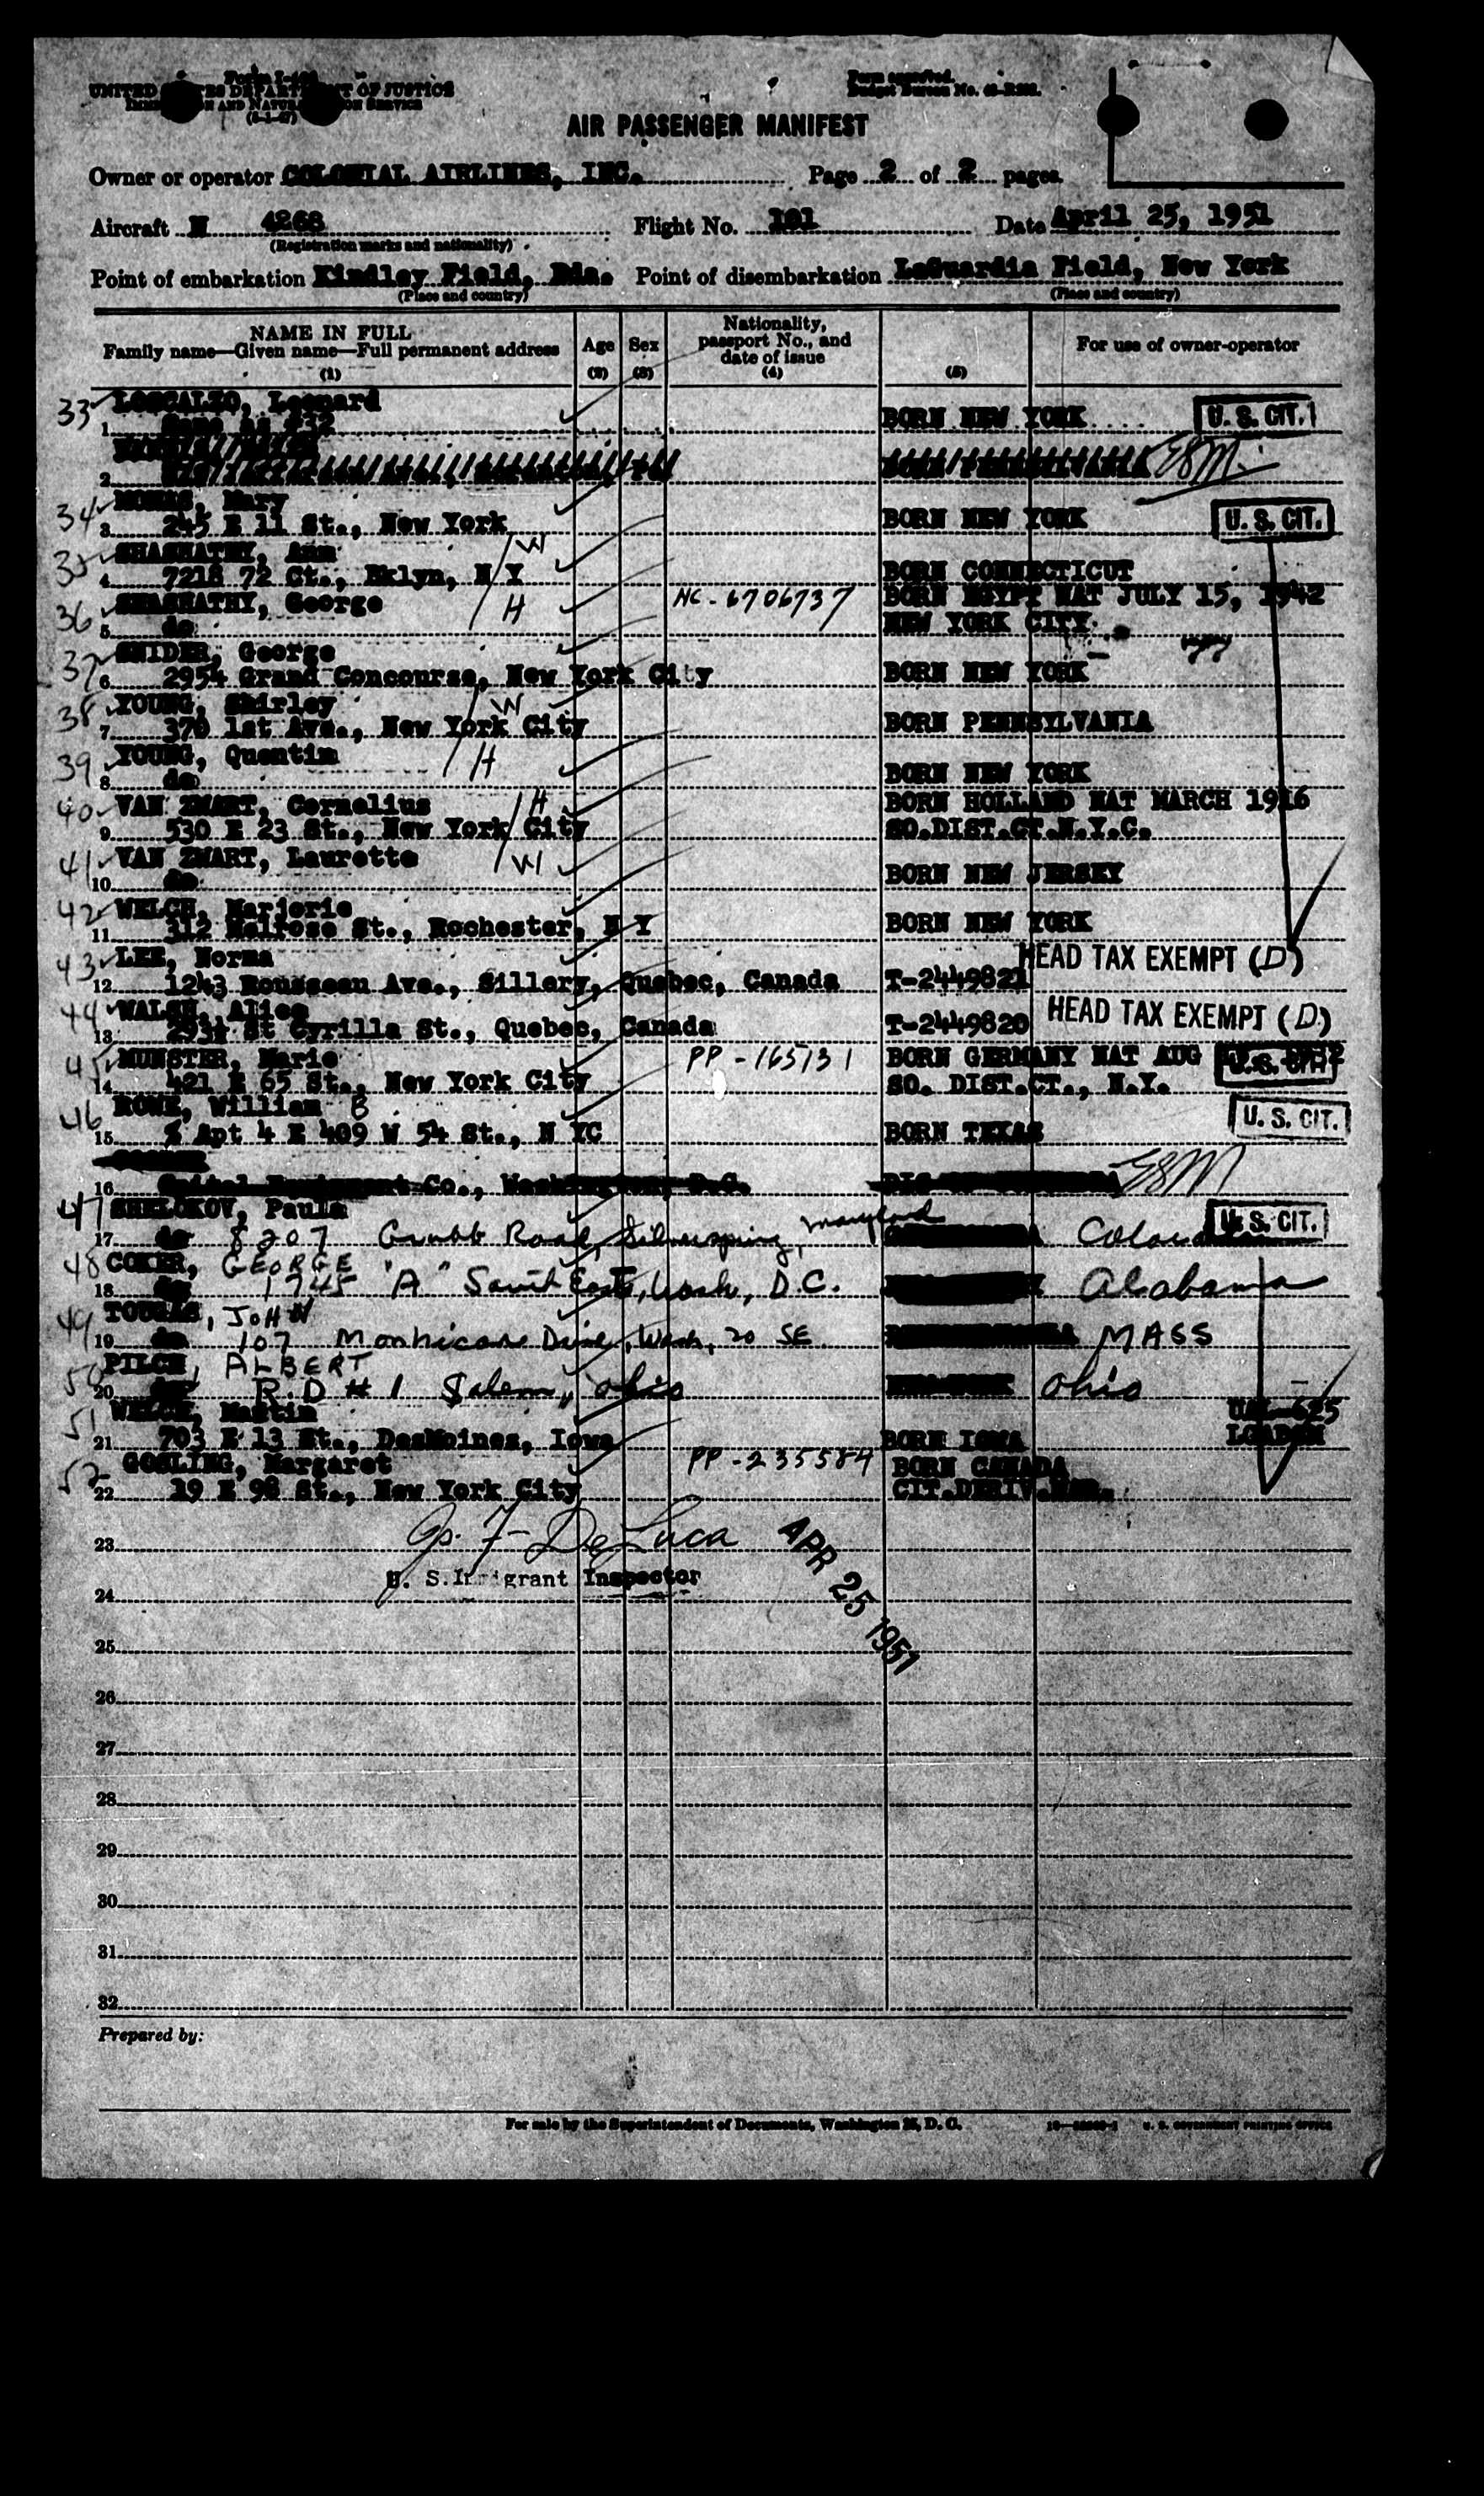 Form I-
UNITED STATES DEPARTMENT OF JUSTICE
IMMIGRATION AND NATURALIZATION SERVICE
Form approved.
Budget Bureau No.
AIR PASSENGER MANIFEST
Owner or operator COLONIAL AIRLINES, INC. Page 2 of 2 pages.
Aircraft N 4268 Flight No. 101 Date April 25, 1951
(Registration marks and nationality)
Point of embarkation Kindley Field, Bda. Point of disembarkation LaGuardia Field, New York
(Place and country) (Place and country)
NAME IN FULL
Family name—Given name—Full permanent address
(1)
Age
(2)
Sex
(3)
Nationality, passport No., and date of issue
(4)
(5)
For use of owner-operator
33 LOSCALZO, Leonard
1 Same as #32 BORN NEW YORK U. S. CIT.
2 ESM
34 Mary
3 245 E 11 St., New York BORN NEW YORK U. S. CIT.
35 SHASHATHY, Ann W
4 7218 72 Ct., Bklyn, N Y BORN CONNECTICUT
36 SHASHATHY, George H NC-6706737 BORN EGYPT NAT JULY 15, 1942
5 do NEW YORK CITY
37 SNIDER, George
6 2954 Grand Concourse, New York City BORN NEW YORK
38 YOUNG, Shirley W
7 370 1st Ave., New York City BORN PENNSYLVANIA
39 YOUNG, Quentin H
8 do BORN NEW YORK
40 VAN ZWART, Cornelius H BORN HOLLAND NAT MARCH 1916
9 530 E 23 St., New York City SO.DIST.CT.N.Y.C.
41 VAN ZWART, Laurette W
10 do BORN NEW JERSEY
42 WELCH, Marjorie
11 312 Melrose St., Rochester, N Y BORN NEW YORK
43 LEE, Norma HEAD TAX EXEMPT (D)
12 1243 Rousseau Ave., Sillery, Quebec, Canada T-2449821
44 WALSH, Alice HEAD TAX EXEMPT (D)
13 St Cyrille St., Quebec, Canada T-2449820
45 MUNSTER, Marie PP-165131 BORN GERMANY NAT AUG U.S. CIT.
14 421 E 65 St., New York City SO. DIST.CT., N.Y.
46 ROWE, William B
15 % Apt 4 E 409 W 54 St., N YC BORN TEXAS U. S. CIT.
16 Co., Washington, D.C. ESM
47 SHELOKOV, Paula
17 8207 Grubb Road, Silverspring, Maryland U. S. CIT.
48 COKER, GEORGE
18 1745 "A" South East, Wash, D.C. Alabama
49 JOHN
19 107 Drive, Wash, 20 SE MASS
50 PILCH, ALBERT
20 R.D # 1 Salem, Ohio Ohio
51 WELCH, Martin
21 703 E 13 St., DesMoines, Iowa BORN IOWA
52 GOSLING, Margaret PP-235584 BORN CANADA
22 19 E 98 St., New York City CIT.DERIV.
23 De Luca
U. S. Immigrant Inspector
APR 25 1951
24
25
26
27
28
29
30
31
32
Prepared by:
For sale by the Superintendent of Documents, Washington 25, D. C. U. S. GOVERNMENT PRINTING OFFICE